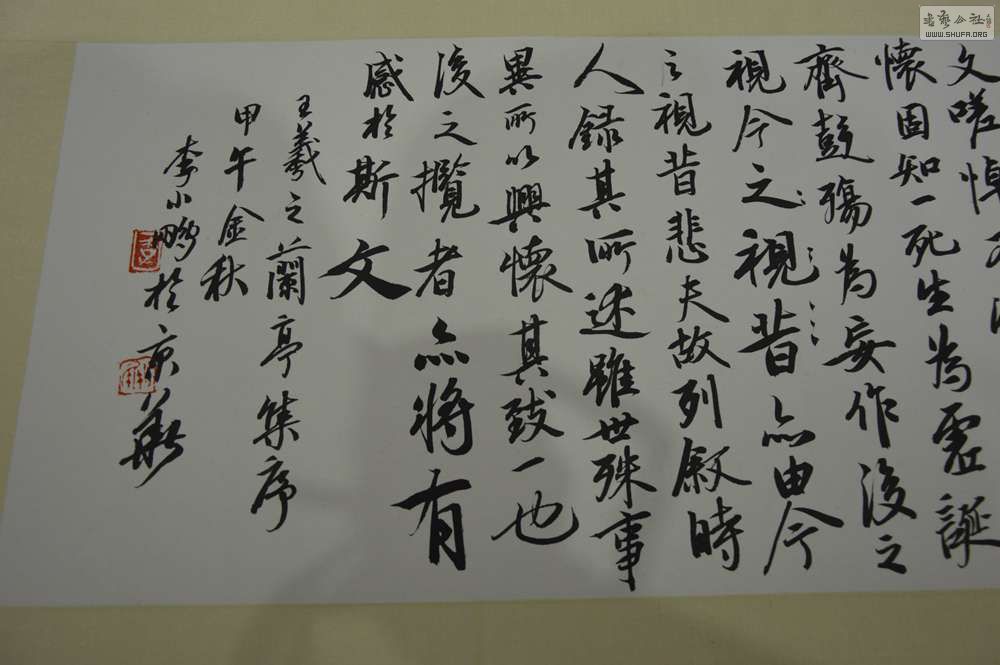 文嗟悼不
懷固知一死生為虛誕
齊彭殤為妄作後之
視今之視昔亦由今
之視昔悲夫故列叙時
人録其所述雖世殊事
異所以興懷其致一也
後之攬者亦將有
感於斯文
王羲之蘭亭集序
甲午金秋
李小鵬於京華
書藝公社
WWW.SHUFA.ORG